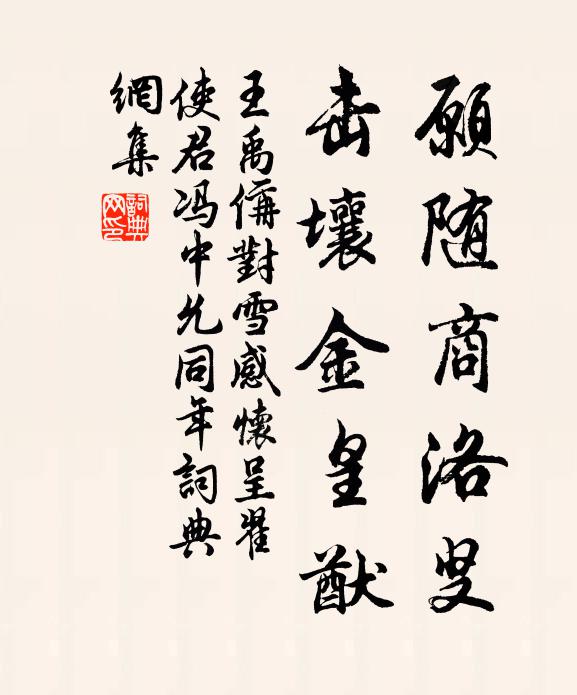 願随商洛叟
击壤金皇猷
王禹偁對雪感懷呈翟
使君冯中允同年詞典
網集
詞典网印